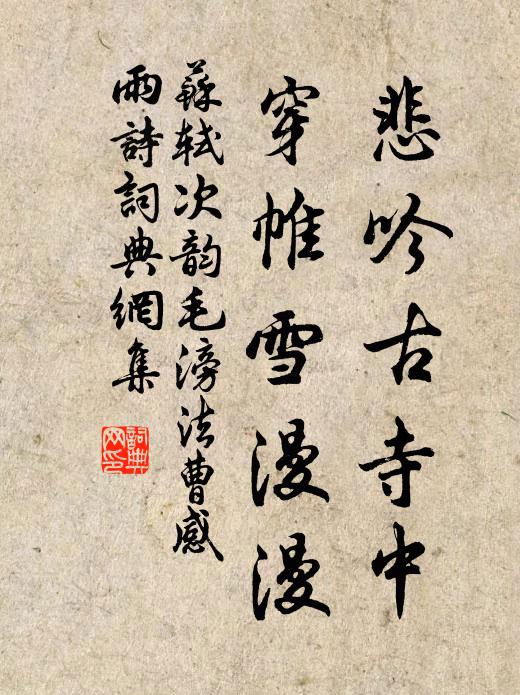 悲吟古寺中
穿帷雪漫漫
蘇軾次韵毛滂法曹感
雨詩詞典網集
詞典
网印